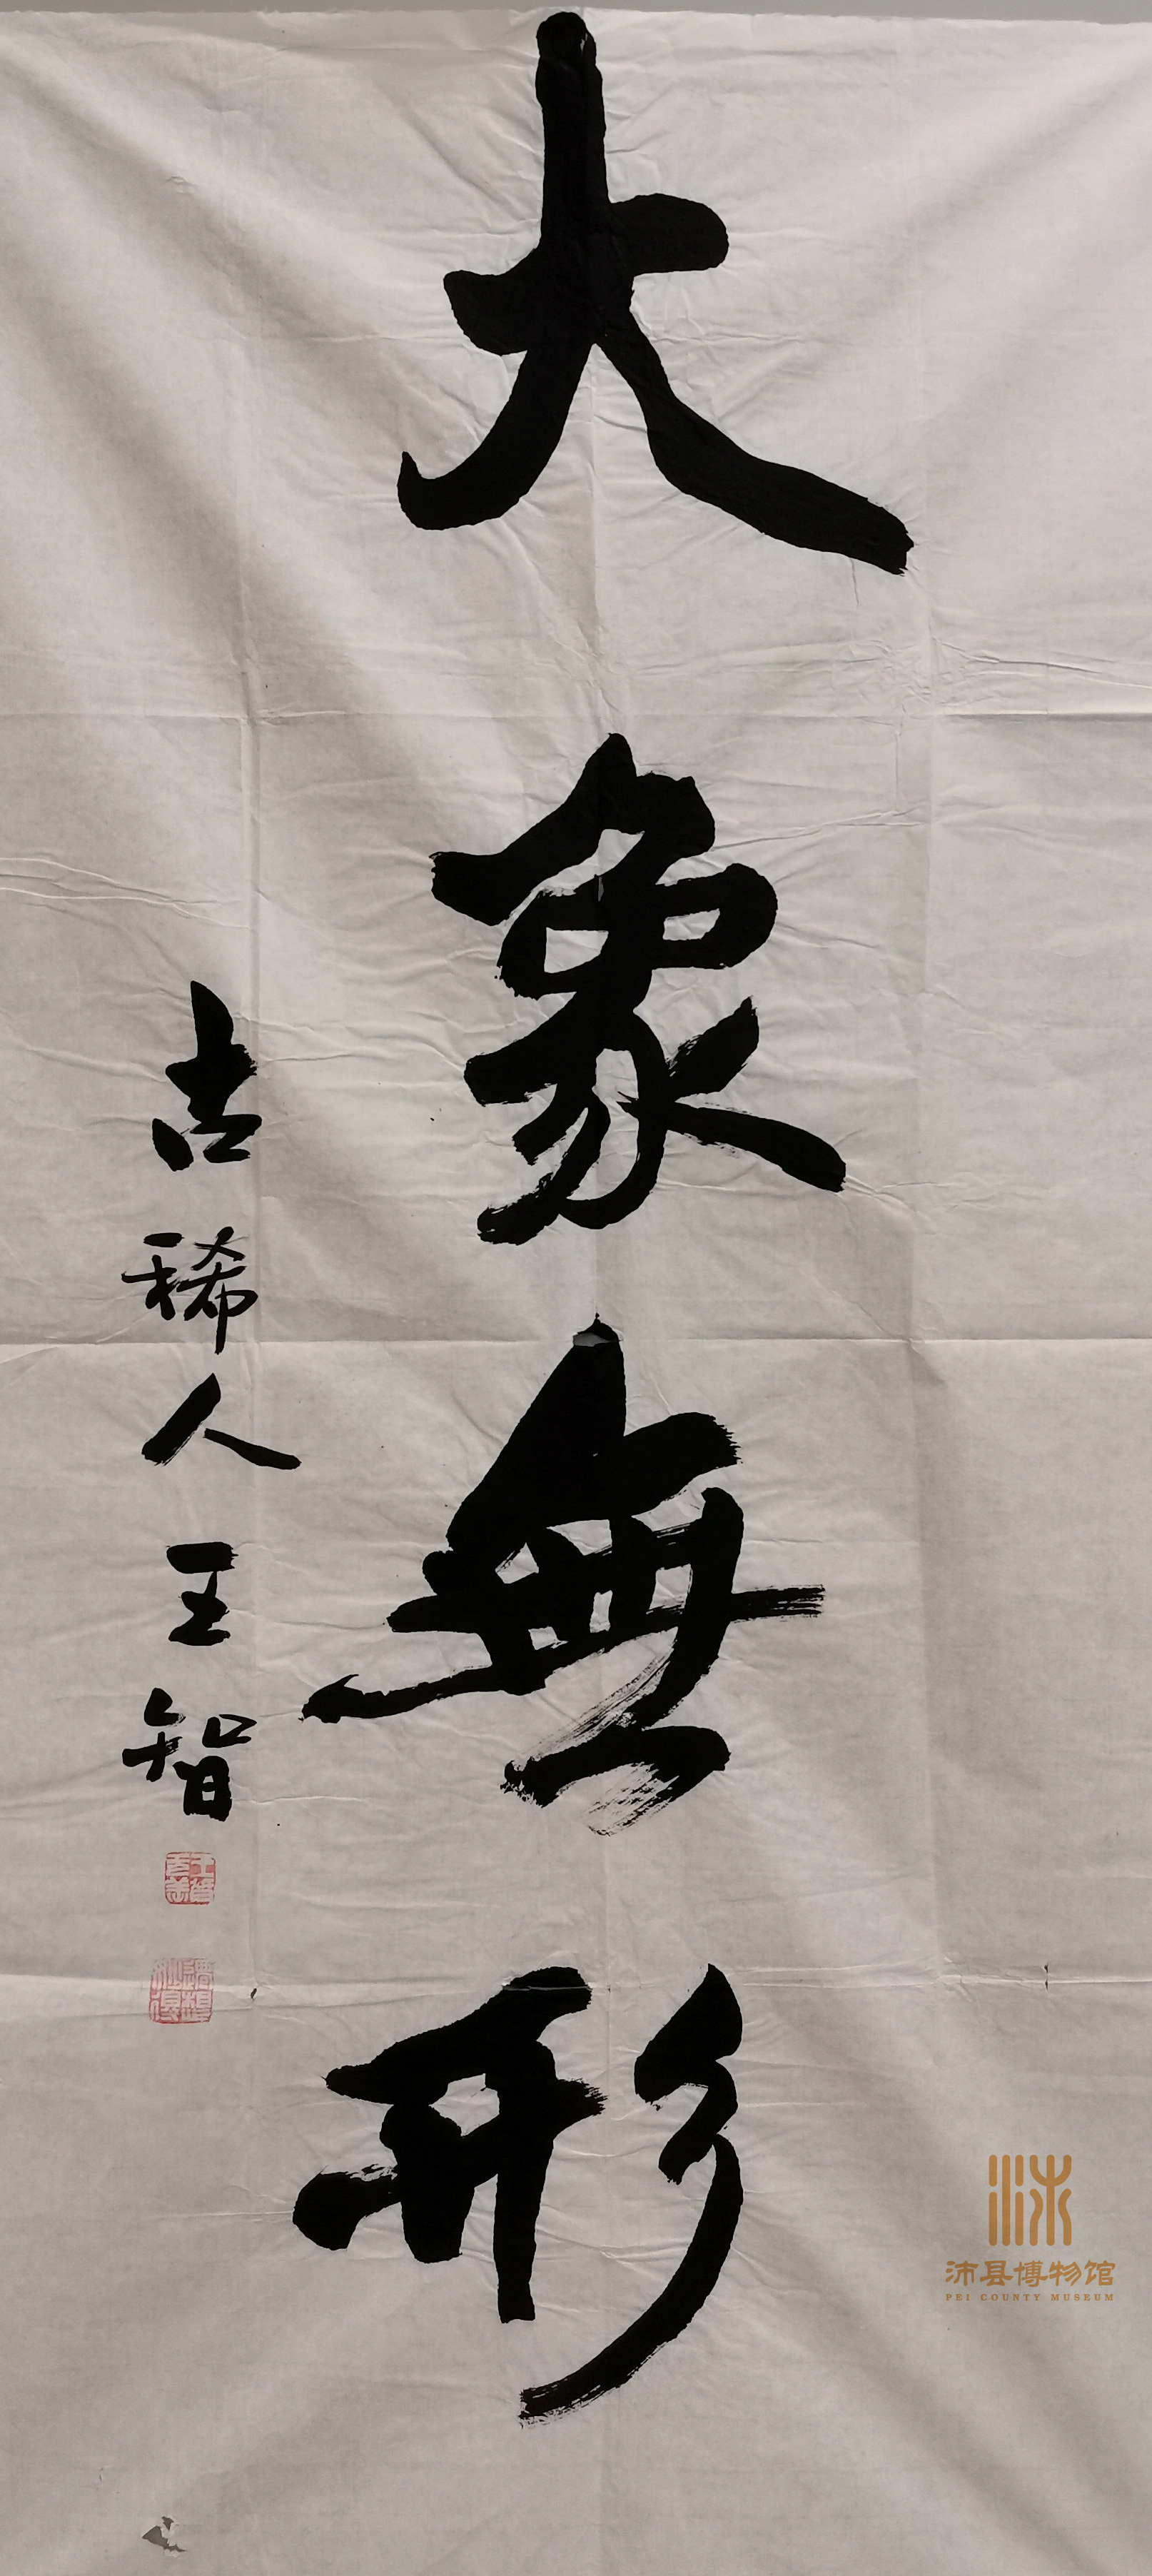 大象無形
古稀人王智
沛县博物馆
PEI COUNTY MUSEUM